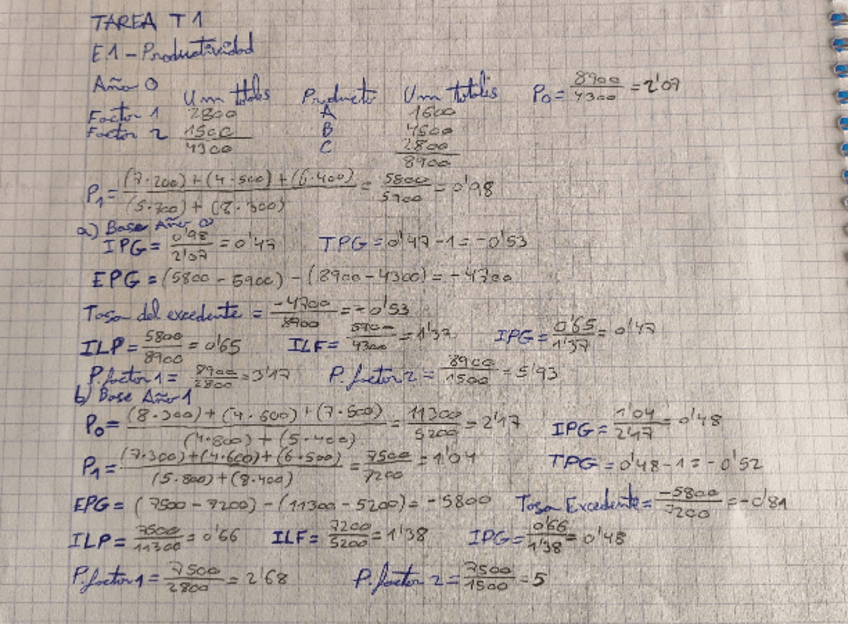 TAREA T1
E1 - Productividad
Año 0 Um totales Producto Um totales P0 = 8900/4300 = 2'07
Factor 1 2800 A 1600
Factor 2 1500 B 4500
4300 C 2800
8900
P1 = (7·200) + (4·500) + (6·400) / (5·700) + (8·300) = 5800/5900 = 0'98
a) Base Año 0
IPG = 0'98/2'07 = 0'47 TPG = 0'47 - 1 = -0'53
EPG = (5800 - 5900) - (8900 - 4300) = -4700
Tasa del excedente = -4700/8900 = -0'53
ILP = 5800/8900 = 0'65 ILF = 5900/4300 = 1'37 IPG = 0'65/1'37 = 0'47
P. factor 1 = 8900/2800 = 3'17 P. factor 2 = 8900/1500 = 5'93
b) Base Año 1
P0 = (8·300) + (4·600) + (7·500) / (4·800) + (5·400) = 11300/5200 = 2'17 IPG = 1'04/2'17 = 0'48
P1 = (7·300) + (4·600) + (6·500) / (5·800) + (8·400) = 7500/7200 = 1'04 TPG = 0'48 - 1 = -0'52
EPG = (7500 - 7200) - (11300 - 5200) = -5800 Tasa Excedente = -5800/7200 = -0'81
ILP = 7500/11300 = 0'66 ILF = 7200/5200 = 1'38 IPG = 0'66/1'38 = 0'48
P. factor 1 = 7500/2800 = 2'68 P. factor 2 = 7500/1500 = 5